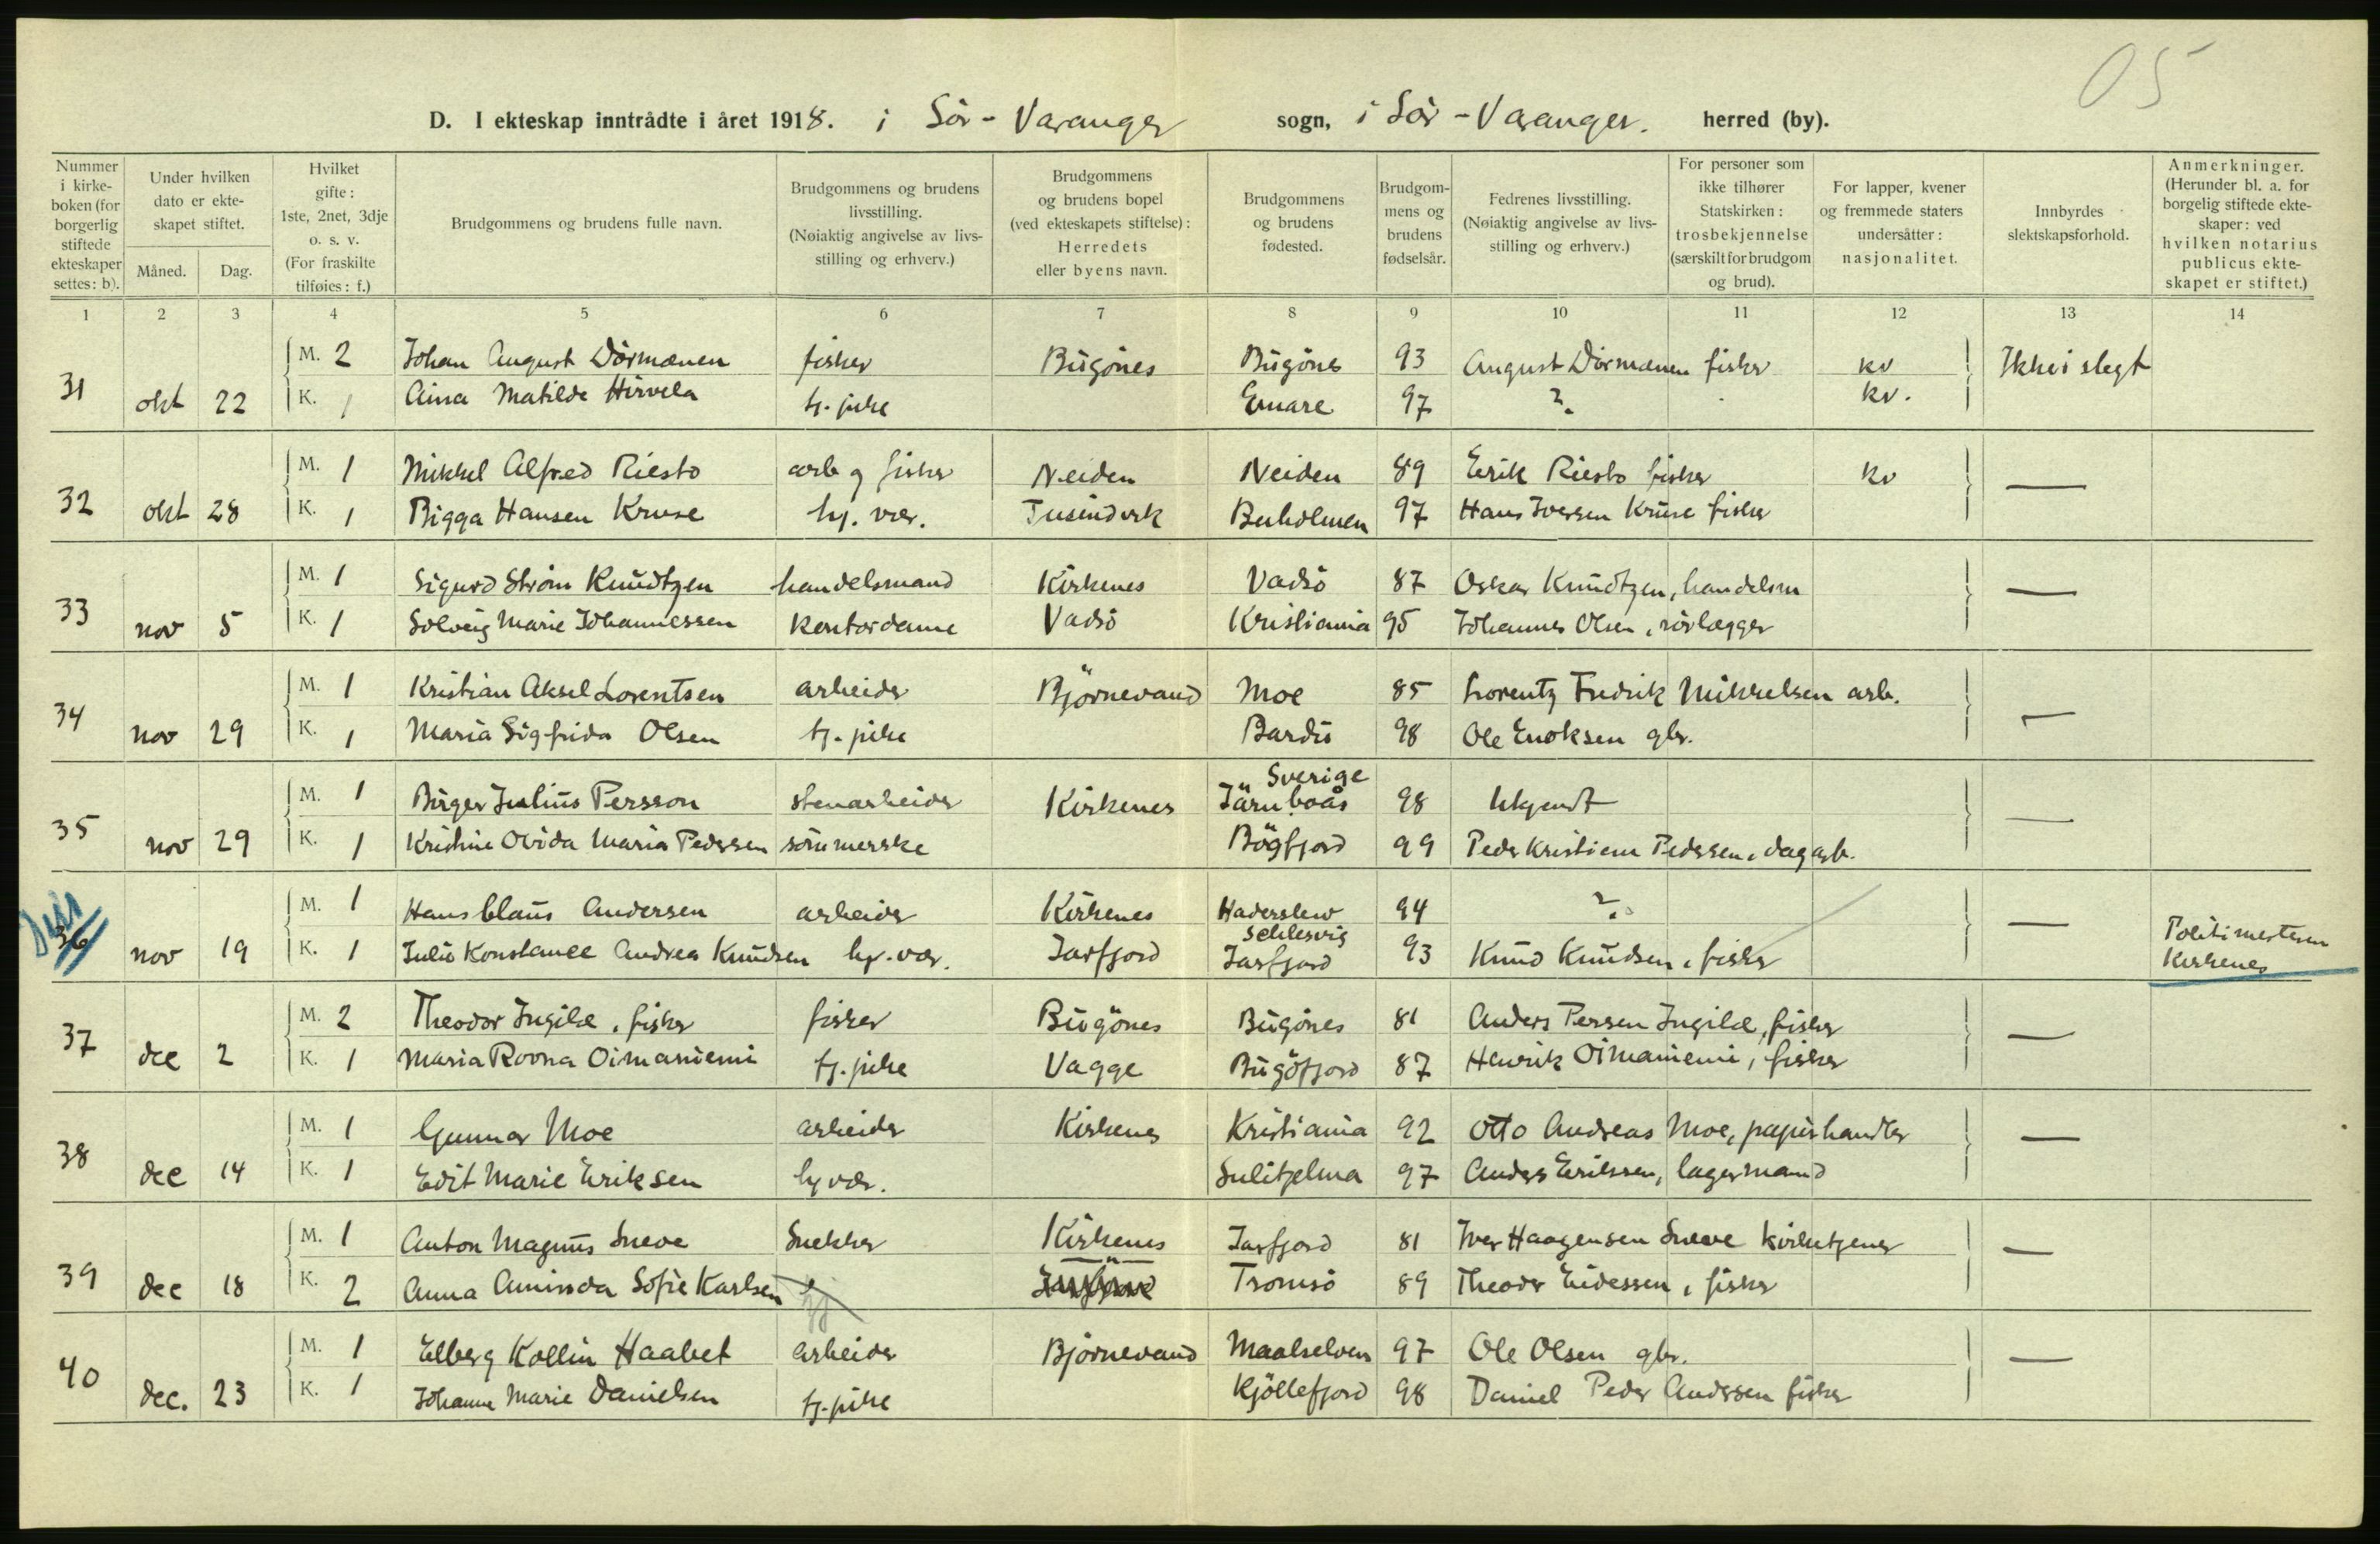 05
D. I ekteskap inntrådte i året 1918. i Sör-Varanger sogn, i Sör-Varanger. herred (by).
Nummer i kirke-boken (for borgerlig stiftede ekteskaper settes: b).
Under hvilken dato er ekte-skapet stiftet.
Måned.
Dag.
Hvilket gifte: 1ste, 2net, 3dje o. s. v. (For fraskilte tilføies: f.)
Brudgommens og brudens fulle navn.
Brudgommens og brudens livsstilling. (Nøiaktig angivelse av livs-stilling og erhverv.)
Brudgommens og brudens bopel (ved ekteskapets stiftelse): Herredets eller byens navn.
Brudgommens og brudens fødested.
Brudgom-mens og brudens fødselsår.
Fedrenes livsstilling. (Nøiaktig angivelse av livs-stilling og erhverv.)
For personer som ikke tilhører Statskirken: trosbekjennelse (særskilt for brudgom og brud).
For lapper, kvener og fremmede staters undersåtter: nasjonalitet.
Innbyrdes slektskapsforhold.
Anmerkninger. (Herunder bl. a. for borgelig stiftede ekte-skaper: ved hvilken notarius publicus ekte-skapet er stiftet.)
1 2 3 4 5 6 7 8 9 10 11 12 13 14
M. 2 Johan August Dörmænen fisker Bugönes Bugönes 93 August Dörmænen fisker kv Ikke i slegt
31 okt 22 K. 1 Aina Matilde Hirvela tj. pike Enare 97 ? kv.
M. 1 Mikkel Alfred Riesto arb og fisker Neiden Neiden 89 Eirik Riesto fisker kv —
32 okt 28 K. 1 Bigga Hansen Kruse hj. vær. Buholmen 97 Hans Iversen Kruse fisker
M. 1 Sigurd Ström Knudtzen handelsmand Kirkenes Vadsö 87 Oskar Knudtzen, handelsm —
33 nov 5 K. 1 Solveig Marie Johannessen kontordame Vadsö Kristiania 95 Johannes Olsen, rörlægger
M. 1 Kristian Aksel Lorentsen arbeider Björnevand Moe 85 Lorentz Fredrik Mikkelsen arb. —
34 nov 29 K. 1 Maria Sigfrida Olsen tj. pike Bardu 98 Ole Enoksen gbr.
Sverige
M. 1 Birger Julius Persson stenarbeider Kirkenes Järnboås 98 Ukjendt —
35 nov 29 K. 1 Kristine Ovida Maria Pedersen sömmerske Bögfjord 99 Peder Kristian Pedersen, dagarb.
M. 1 Hans Claus Andersen arbeider Kirkenes Haderslew Schlesvig 94 ? —
36 nov 19 K. 1 Julie Konstance Andrea Knudsen hj. vær. Jarfjord Jarfjord 93 Knud Knudsen, fisker Politimesteren Kirkenes
M. 2 Theodor Ingilæ, fisker fisker Bugönes Bugönes 81 Anders Persen Ingilæ, fisker —
37 dec 2 K. 1 Maria Rovna Oimaniemi tj. pike Vagge Bugöfjord 87 Henrik Oimaniemi, fisker
M. 1 Gunnar Moe arbeider Kirkenes Kristiania 92 Otto Andreas Moe, papirhandler —
38 dec 14 K. 1 Edit Marie Eriksen hj vær. Sulitjelma 97 Anders Eriksen, lagermand
M. 1 Anton Magnus Sneve Snekker Kirkenes Jarfjord 81 Iver Haagensen Sneve kirketjener —
39 dec 18 K. 2 Anna Aminda Sofie Karlsen Tromsö 89 Theodor Eidessen, fisker
M. 1 Elberg Kollin Haabet arbeider Björnevand Maalselven 97 Ole Olsen gbr. —
40 dec. 23 K. 1 Johanne Marie Danielsen tj. pike Kjöllefjord 98 Daniel Peder Andersen fisker